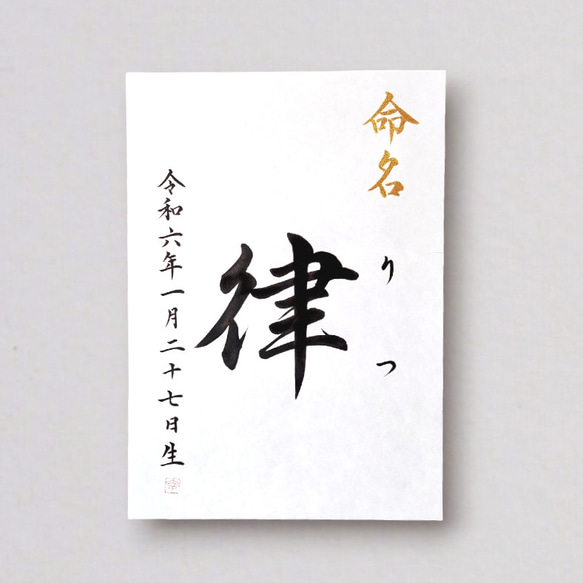 命名
りつ
律
令和六年一月二十七日生